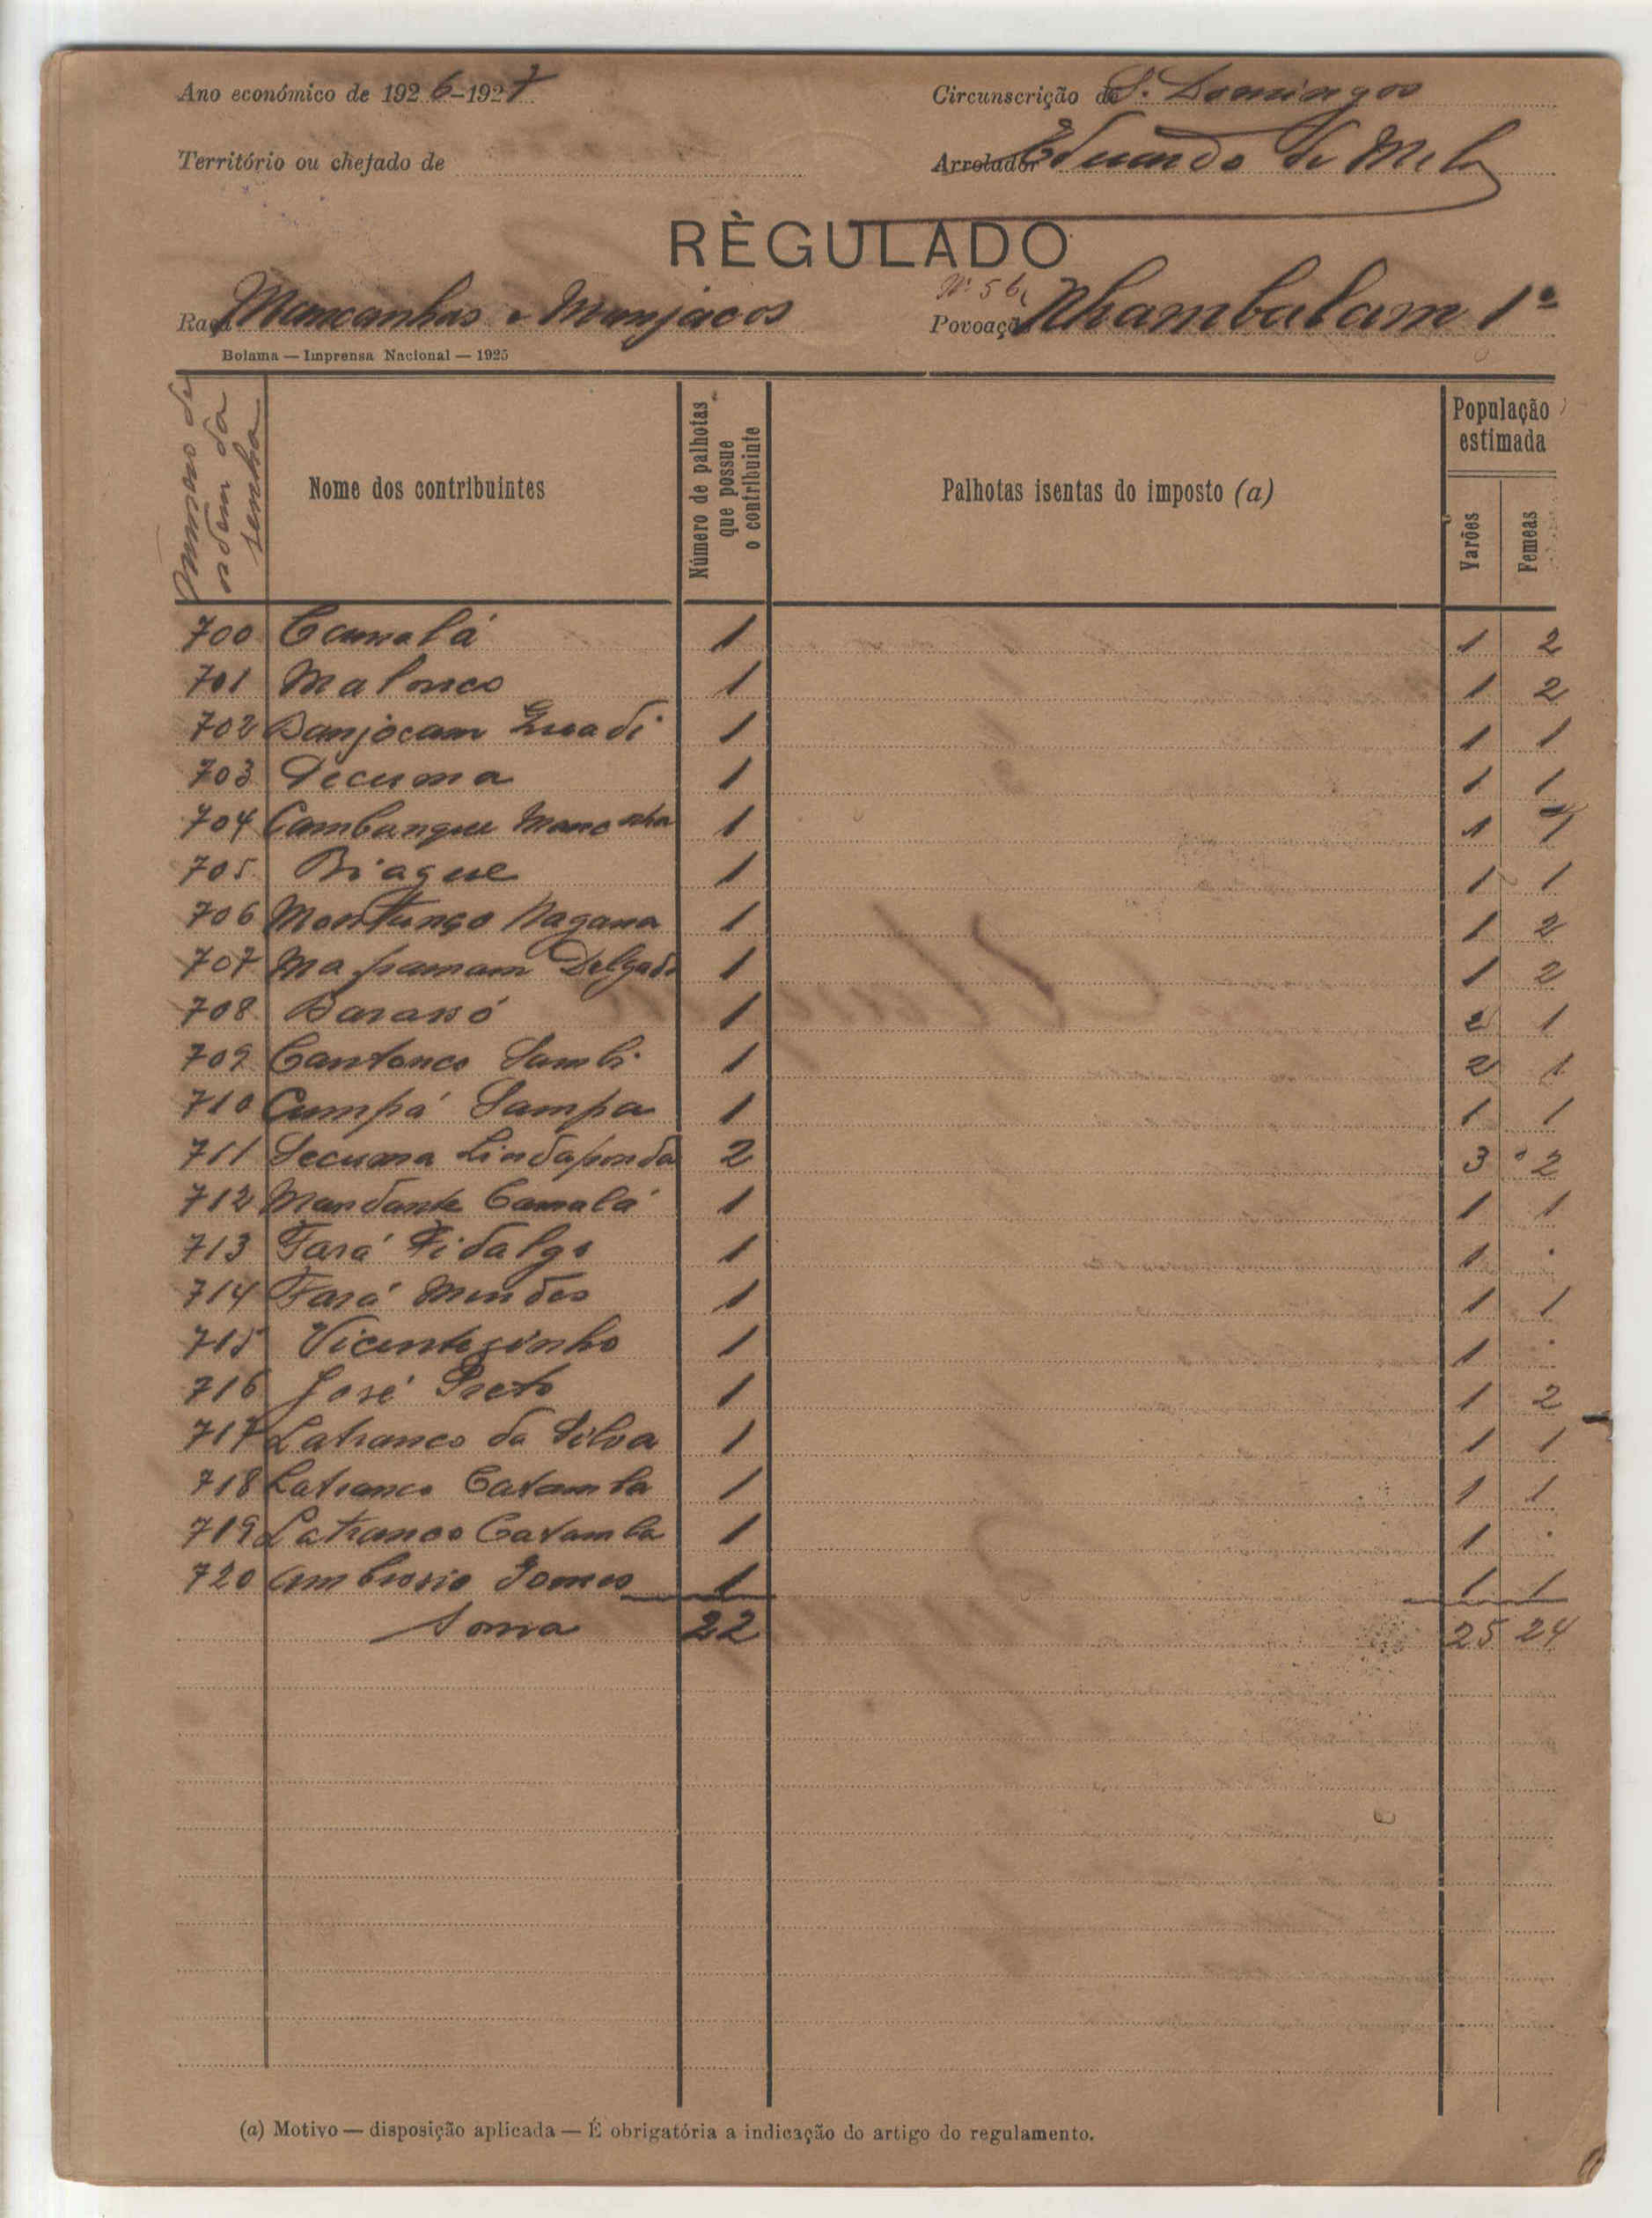 Ano económico de 1926-1927 Circunscrição de S. Domingos
Território ou chefado de Arrolador Eduardo de Melo
RÈGULADO
Nº 56
Raça Mancanhas e Manjacos Povoação Nhambalam 1º
Bolama — Imprensa Nacional — 1925
Número de ordem da senha Nome dos contribuintes Número de palhotas que possue o contribuinte Palhotas isentas do imposto (a) População estimada
Varões Femeas
700 Camalá 1 1 2
701 Malonco 1 1 2
702 Banjocam 1 1 1
703 Decuma 1 1 1
704 Cambangue Mancanha 1 1 1
705 Biague 1 1 1
706 Montunço Nagana 1 1 2
707 Delgado 1 1 2
708 Barassó 1 2 1
709 Cantonco Sambi 1 2 1
710 Cumpá Sampa 1 1 1
711 Secuma Lindaponda 2 3 2
712 Mandante Camalá 1 1 1
713 Tará Fidalgo 1 1 .
714 Tará Mendes 1 1 1
715 Vicentesinho 1 1 .
716 José Preto 1 1 2
717 Latranco da Silva 1 1 1
718 Latranco Catamba 1 1 1
719 Latranco Catamba 1 1 .
720 Ambrosio Gomes 1 1 1
Soma 22 25 24
(a) Motivo — disposição aplicada — É obrigatória a indicação do artigo do regulamento.